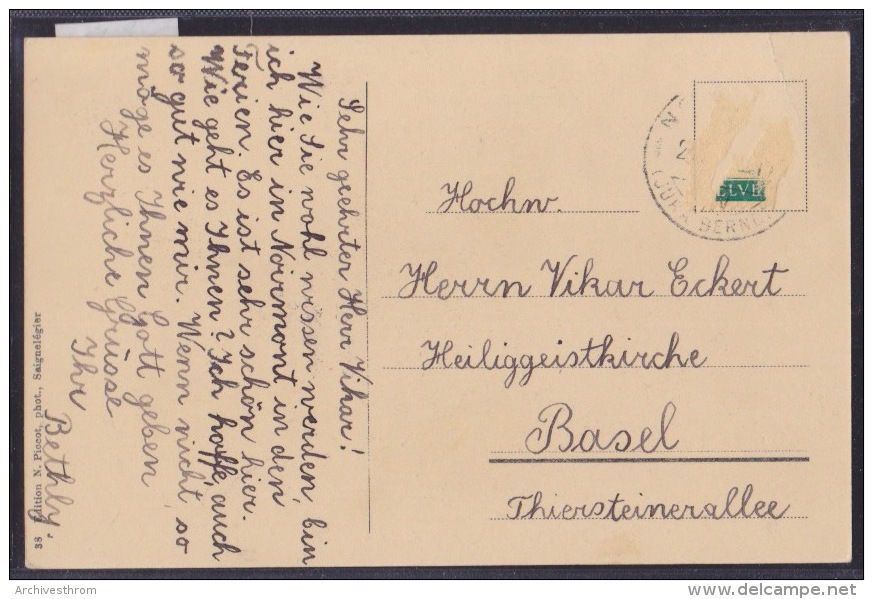 Sehr geehrter Herr Vikar!
Wie Sie wohl wissen werden, bin
ich hier in Noirmont in den
Ferien. Es ist sehr schön hier.
Wie geht es Ihnen? Ich hoffe, auch
so gut wie mir. Wenn nicht, so
möge es Ihnen Gott geben
Herzliche Grüsse
Ihr
Bethly.
38 Edition N. Piccot, phot., Saignelégier
ELVE
BERNE
Hochw.
Herrn Vikar Eckert
Heiliggeistkirche
Basel
Thiersteinerallee
Archivesthrom
www.delcampe.net